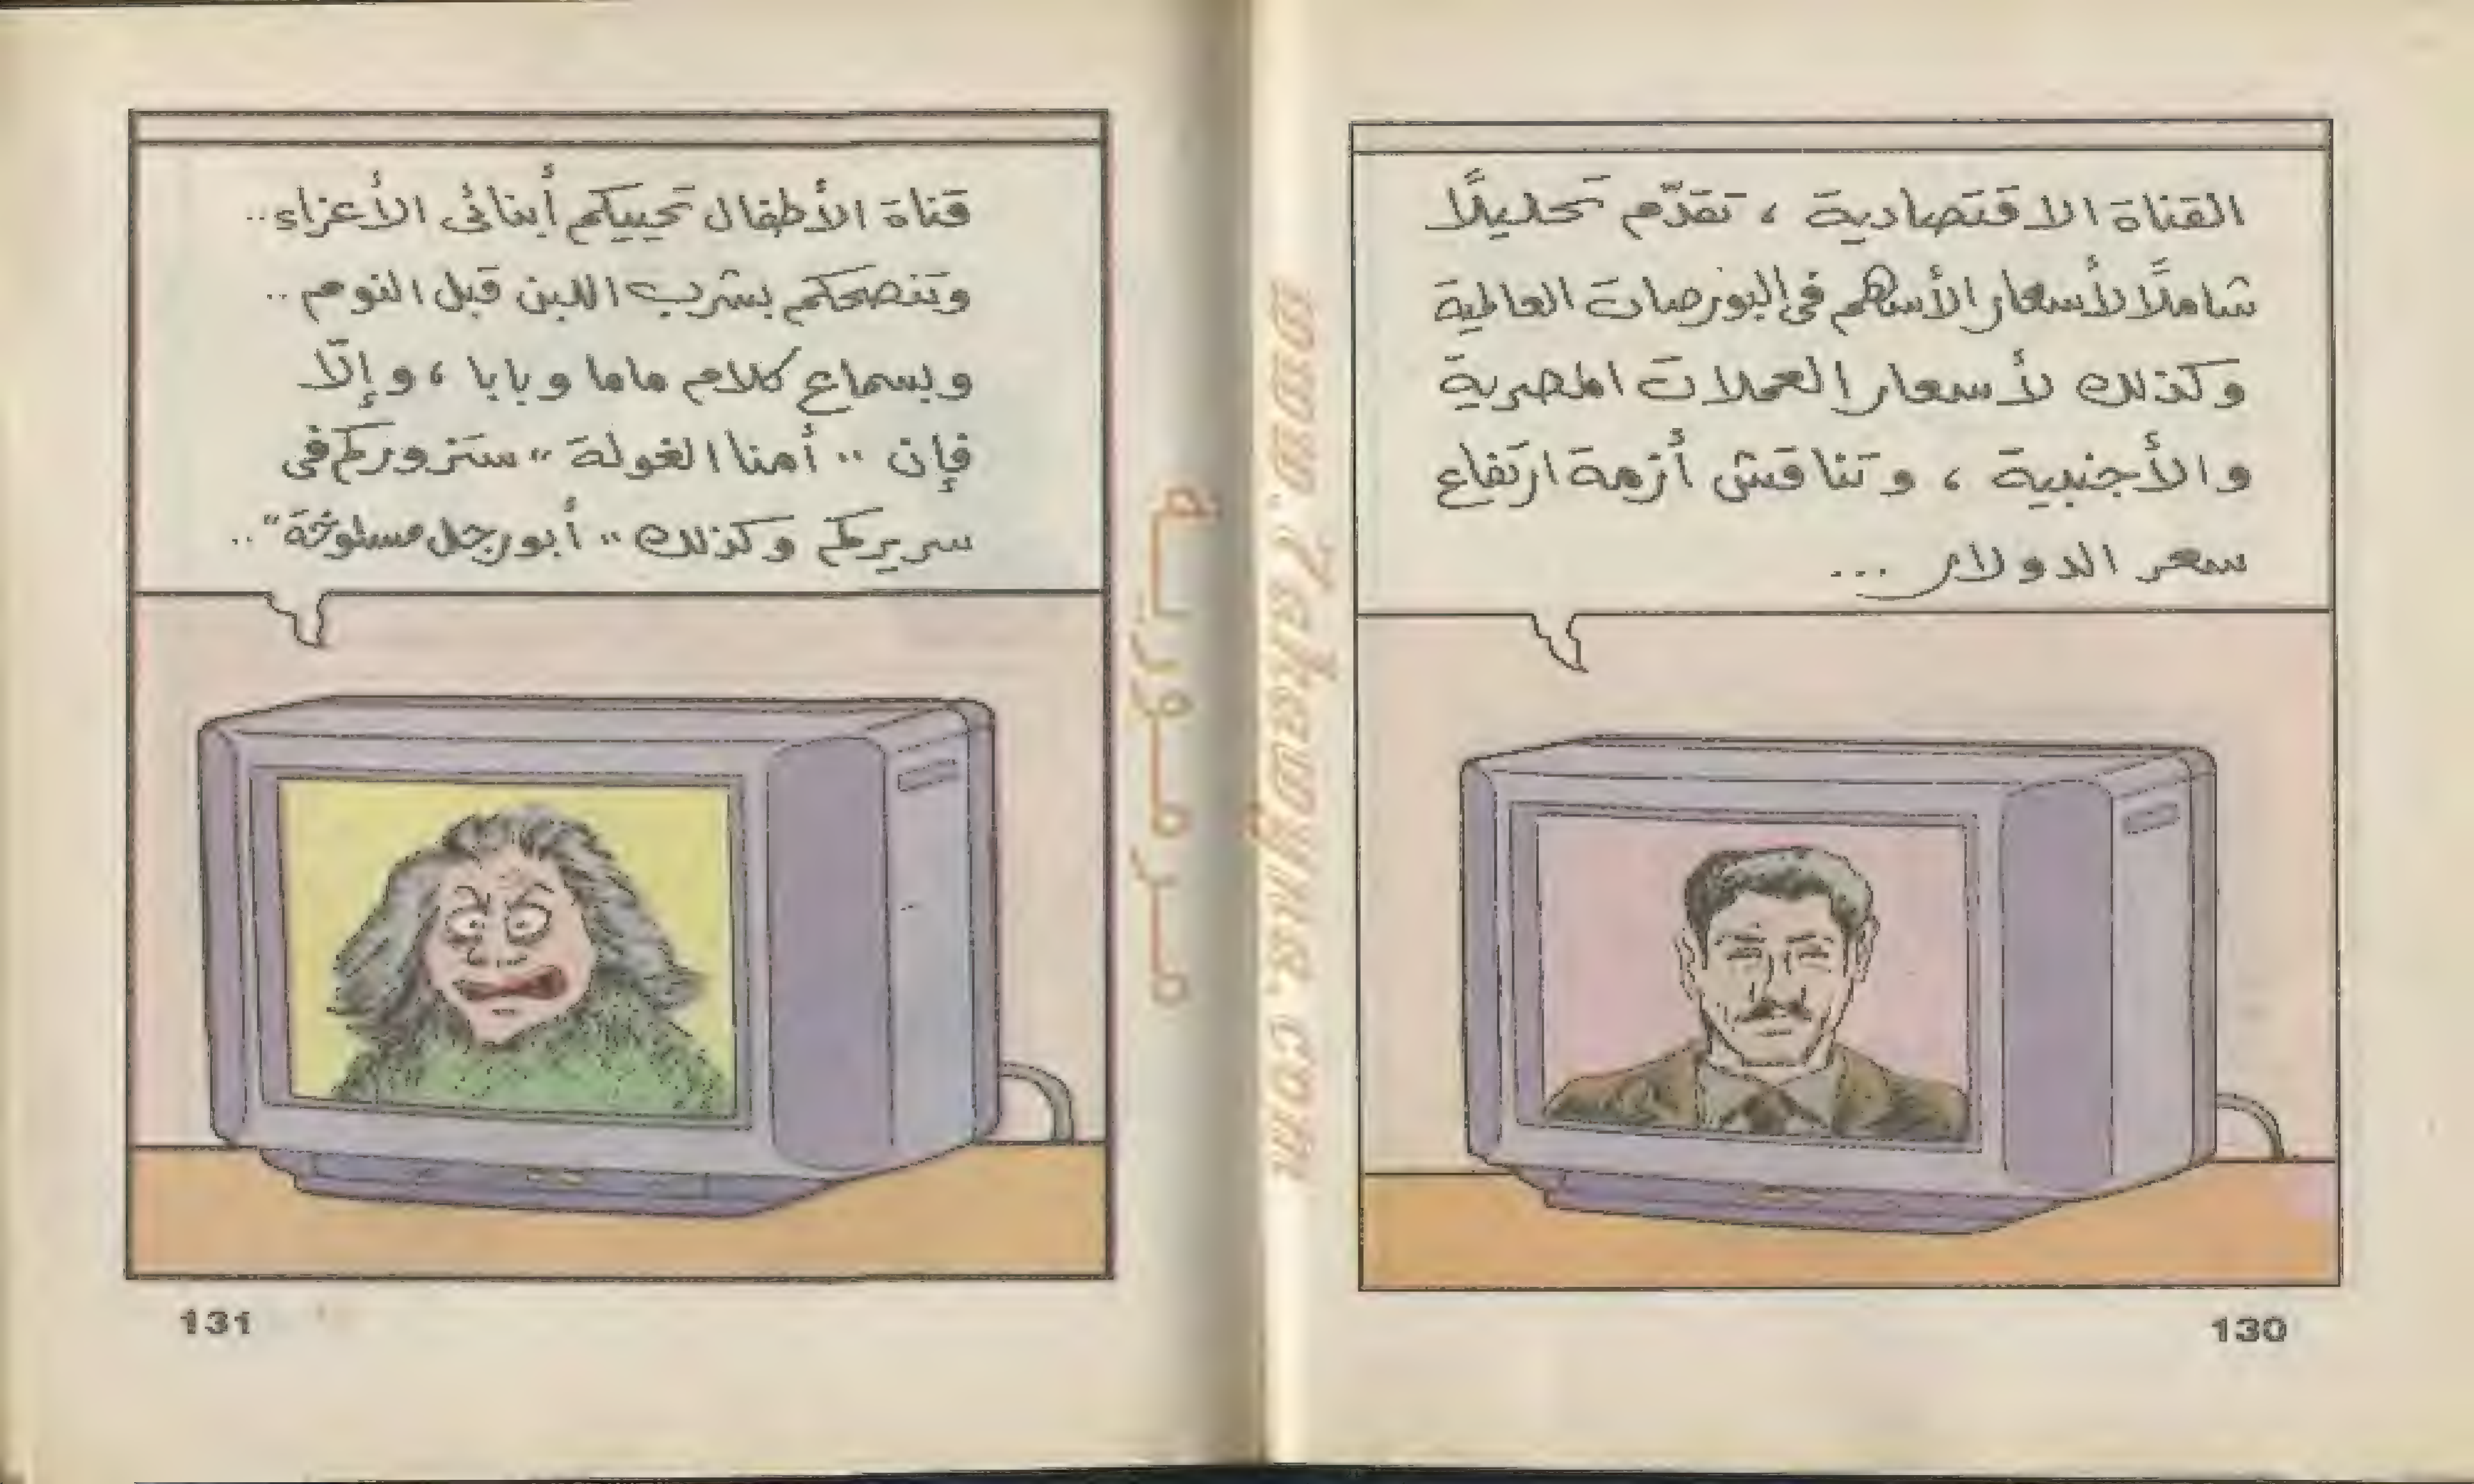 القناة الاقتصادية ، تقدّم تحليلاً
شاملاً لأسعار الأسهم فى البورصات العالمية
وكذلك لأسعار العملات المصرية
والأجنبية ، وتناقش أزمة ارتفاع
سعر الدولار ...
130
قناة الأطفال تحييكم أبنائى الأعزاء ..
وتنصحكم بشرب اللبن قبل النوم ..
وبسماع كلام ماما وبابا ، وإلّا
فإن " أمنا الغولة " ستزوركم فى
سريركم وكذلك " أبو رجل مسلوخة " ..
131
مرمورية
www.7akawyna.com